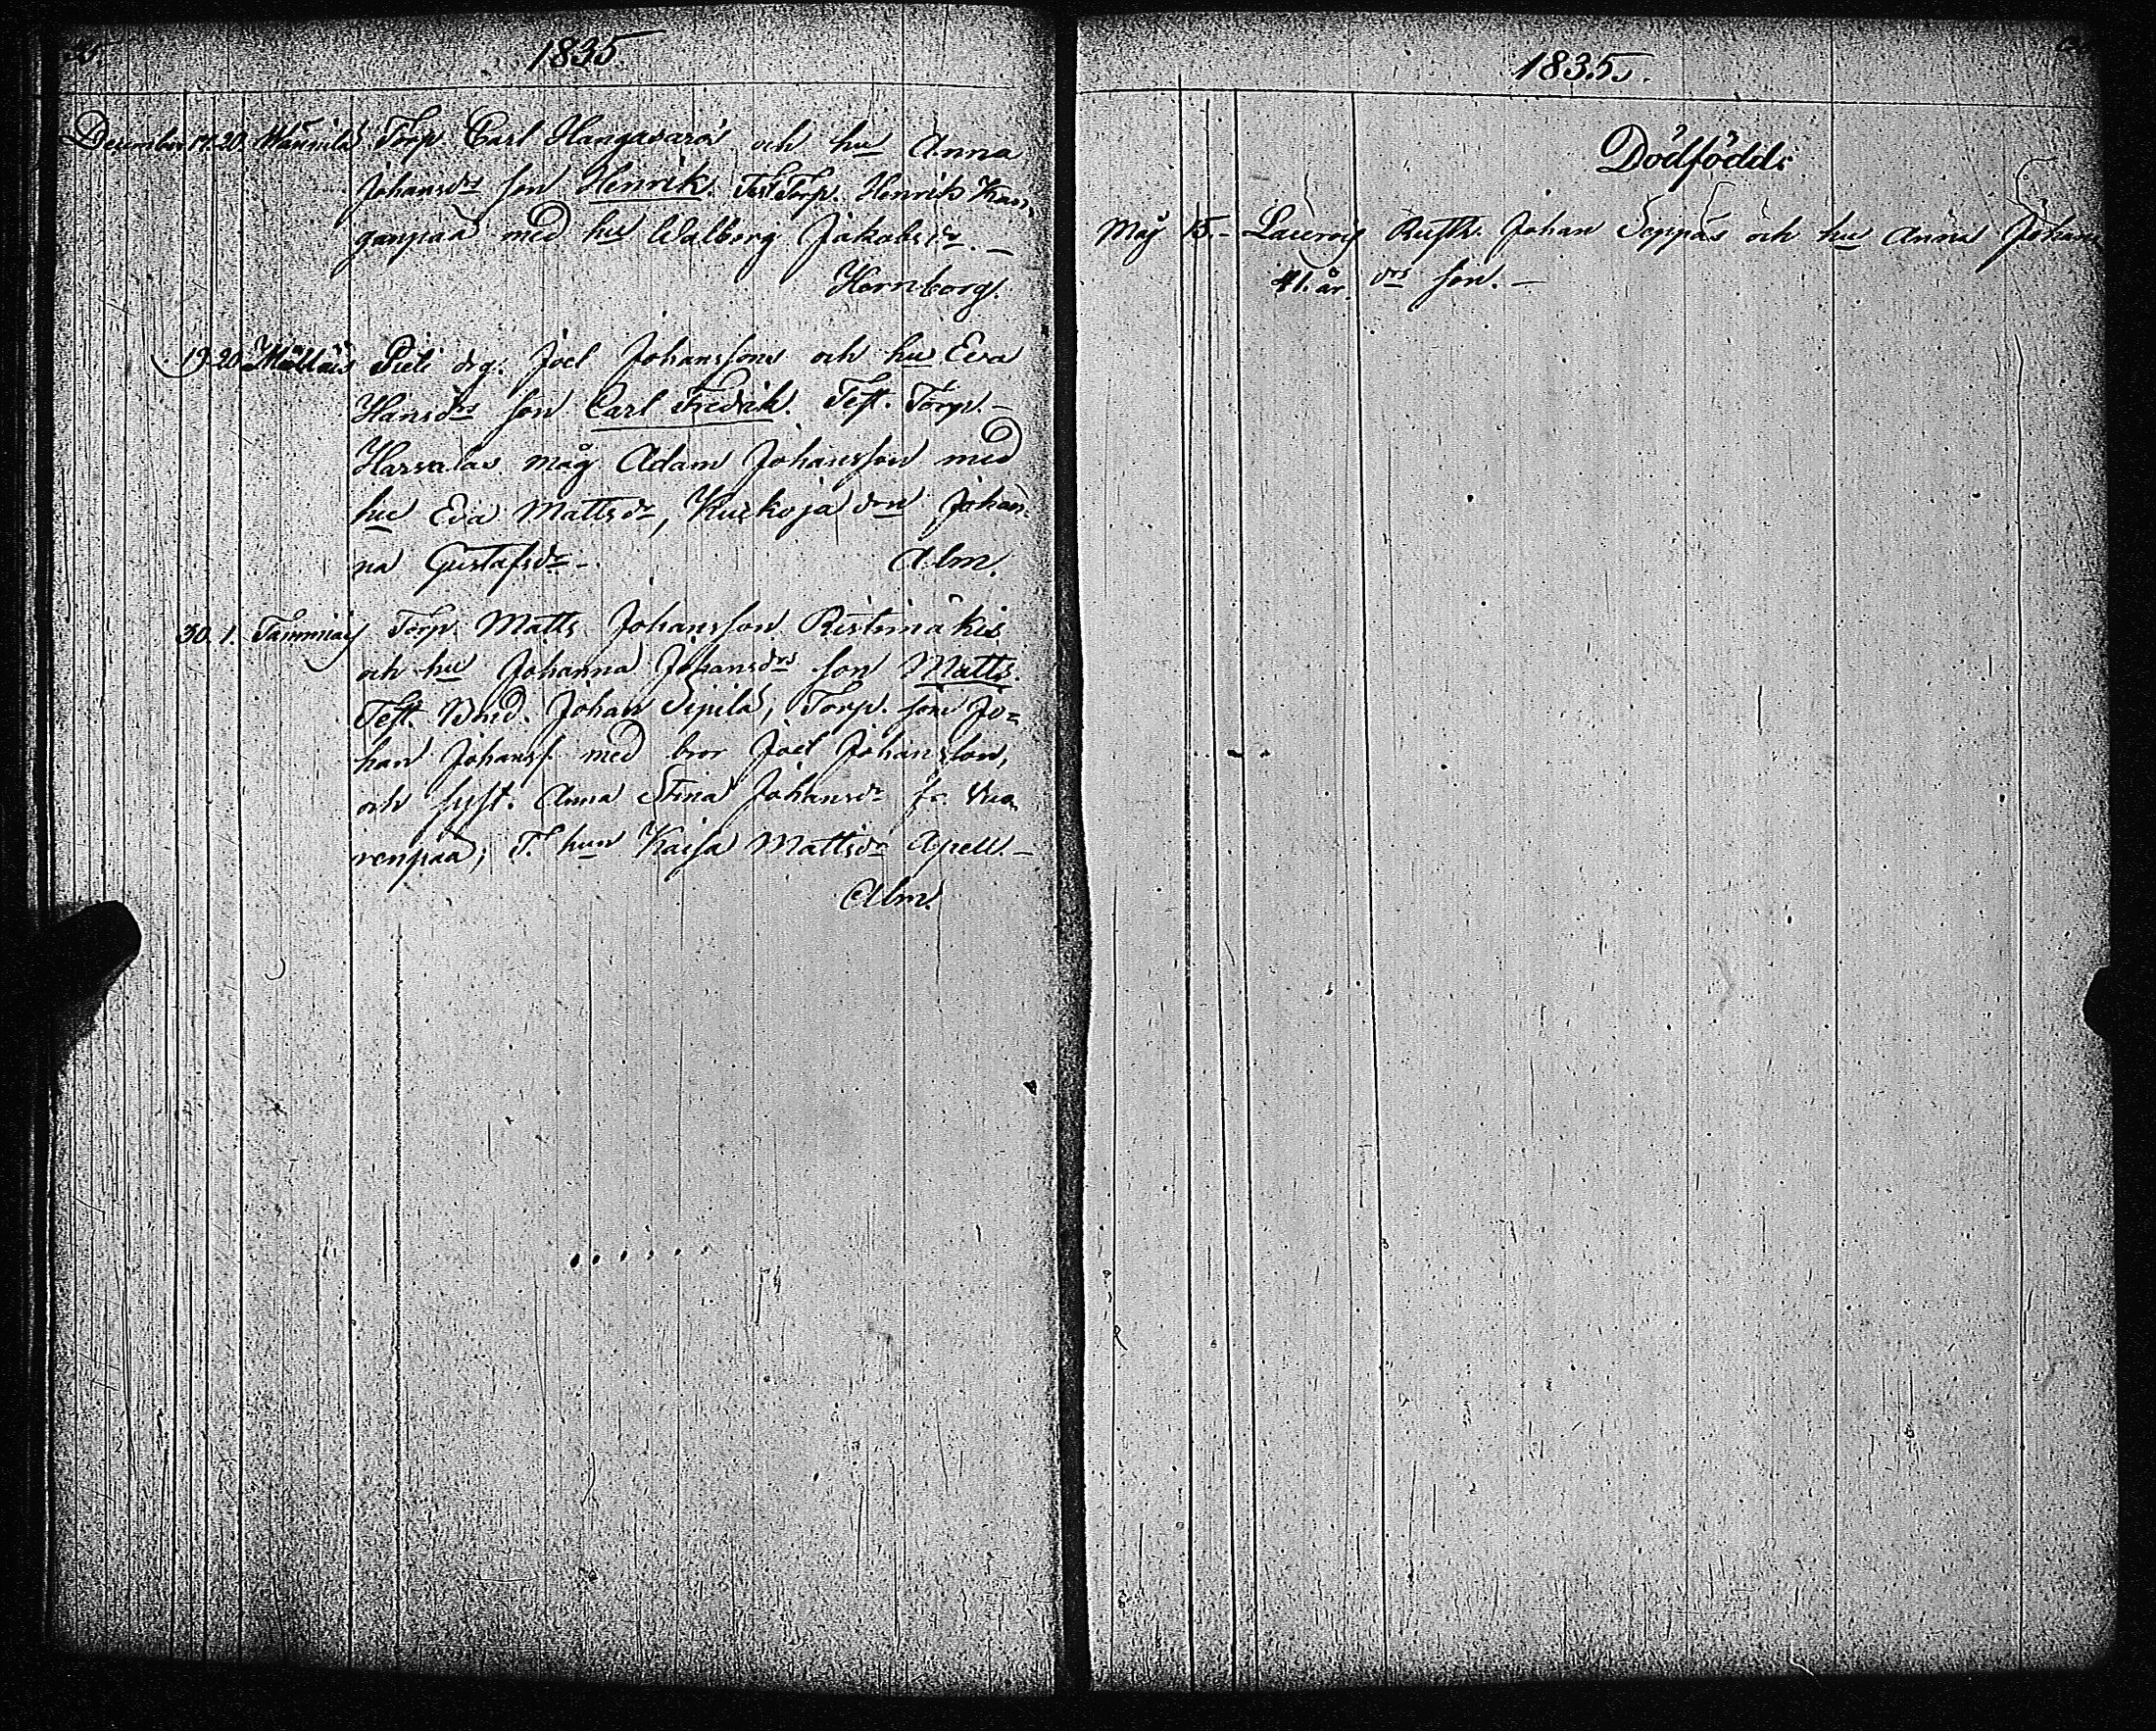 1835.
December 17. 20. Wännilä Torp Carl Hangavaros och hu Anna
Johansdrs son Henrik. Test. Torp. Henrik Kan-
ganpää med hu Walborg Jakobsdr. —
Hornborg.
19. 20. Pieti drg. Joel Johanssons och hu Eva
Hansdrs son Carl Fredrik. Test. Torp. —
Harvalas måg Adam Johansson med
hu Eva Mattsdr, Kuckoja dm Johan-
na Gustafsdr. — Alm.
30. 1. Tammiais Torp. Matts Johansson Ristimäkis
och hu Johanna Johansdrs son Matts.
Test. Bnd. Johan Sipilä, Torp. son Jo=
han Johanss. med bror Joel Johansson,
och syst. Anna Stina Johansdr fr. Vua-
renpää; T. hun Kaisa Mattsdr Apell. —
Alm.
1835.
Dödfödde
Maj 15. - Laurois Rusth. Johan Seppäs och hu Anna Johans
41. år. drs son. —